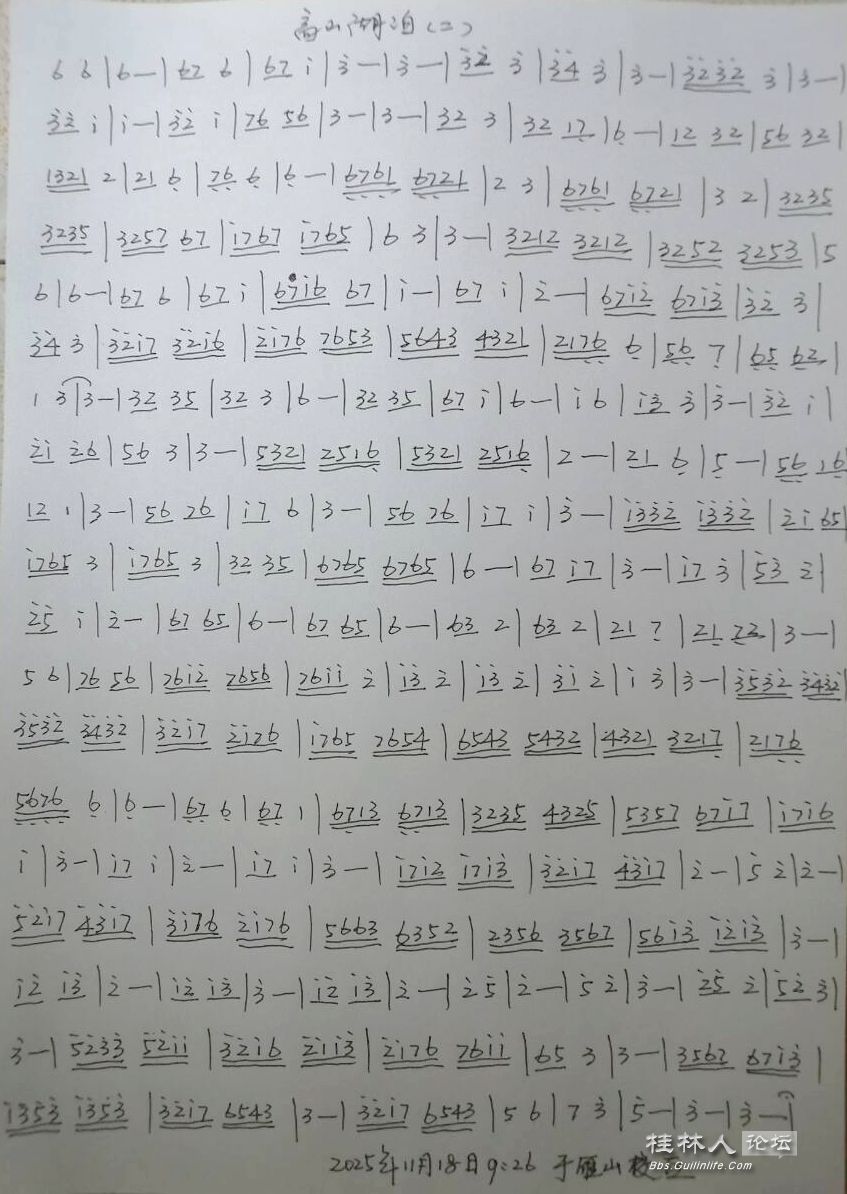 高山湖泊(二)
6 6 | 6 — | 67 6 | 67 i | 3̇ — | 3̇ — | 3̇2̇ 3̇ | 3̇4̇ 3̇ | 3̇ — | 3̇2̇3̇2̇ 3̇ | 3̇ — |
3̇2̇ i | i — | 3̇2̇ i | 76 56 | 3 — | 3 — | 32 3 | 32 17̣ | 6̣ — | 12 32 | 56 32 |
1321 2 | 21 6̣ | 7̣6̣ 6̣ | 6̣ — | 6̣7̣6̣1 6̣7̣21 | 2 3 | 6̣7̣6̣1 6̣7̣21 | 3 2 | 3235
3235 | 3257 67 | i767 i765 | 6 3 | 3 — | 3212 3212 | 3252 3253 | 5
6 | 6 — | 67 6 | 67 i | 67i6 67 | i — | 67 i | 2̇ — | 67i2̇ 67i3̇ | 3̇2̇ 3̇ |
3̇4̇ 3̇ | 3̇2̇i7 3̇2̇i6 | 2̇i76 7653 | 5643 4321 | 217̣6̣ 6̣ | 5̣6̣ 7̣ | 6̣5̣ 6̣2 |
1 3 | 3 — | 32 35 | 32 3 | 6 — | 32 35 | 67 i | 6 — | i 6 | i3̇ 3̇ | 3̇ — | 3̇2̇ i |
2̇i 2̇6 | 56 3 | 3 — | 5321 2516̣ | 5321 2516̣ | 2 — | 21 6̣ | 5̣ — | 5̣6̣ 16̣
12 1 | 3 — | 56 76 | i7 6 | 3 — | 56 76 | i7 i | 3̇ — | i3̇3̇2̇ i3̇3̇2̇ | 2̇i 65 |
i765 3 | i765 3 | 32 35 | 6765 6765 | 6 — | 67 i7 | 3̇ — | i7 3̇ | 5̇3̇ 2̇ |
2̇5̇ i | 2̇ — | 67 65 | 6 — | 67 65 | 6 — | 63 2 | 63 2 | 21 7̣ | 21 | 3 — |
5 6 | 76 56 | 76i2̇ 7656 | 76ii 2̇ | i3̇ 2̇ | i3̇ 2̇ | 3̇i 2̇ | i 3̇ | 3̇ — | 3̇5̇3̇2̇ 3̇4̇3̇2̇ |
3̇5̇3̇2̇ 3̇4̇3̇2̇ | 3̇2̇i7 2̇i76 | i765 7654 | 6543 5432 | 4321 3217̣ | 217̣6̣
5̣6̣7̣6̣ 6̣ | 6̣ — | 6̣7̣ 6̣ | 6̣7̣ 1 | 6̣7̣13 6̣7̣13 | 3235 4325 | 5357 67i7 | i7i6
i | 3̇ — | i7 i | 2̇ — | i7 i | 3̇ — | i7i2̇ i7i3̇ | 3̇2̇i7 4̇3̇i7 | 2̇ — | 5̇ 2̇ | 2̇ — |
5̇2̇i7 4̇3̇i7 | 3̇i76 2̇i76 | 5663 6352 | 2356 3567 | 56i3̇ i2̇i3̇ | 3̇ — |
i2̇ i3̇ | 2̇ — | i2̇ i3̇ | 3̇ — | i2̇ i3̇ | 2̇ — | 2̇ 5̇ | 2̇ — | 5̇ 2̇ | 3̇ — | 2̇5̇ 2̇ | 5̇2̇ 3̇ |
3̇ — | 5̇2̇3̇3̇ 5̇2̇ii | 3̇2̇i6 2̇ii3̇ | 2̇i76 76ii | 65 3 | 3 — | 3567 67i3̇ |
i3̇5̇3̇ i3̇5̇3̇ | 3̇2̇i7 6543 | 3 — | 3̇2̇i7 6543 | 5 6 | 7 3̇ | 5̇ — | 3̇ — | 3̇ — |
2025年11月18日9:26 于雁山校区
桂林人论坛
Bbs.Guilinlife.Com